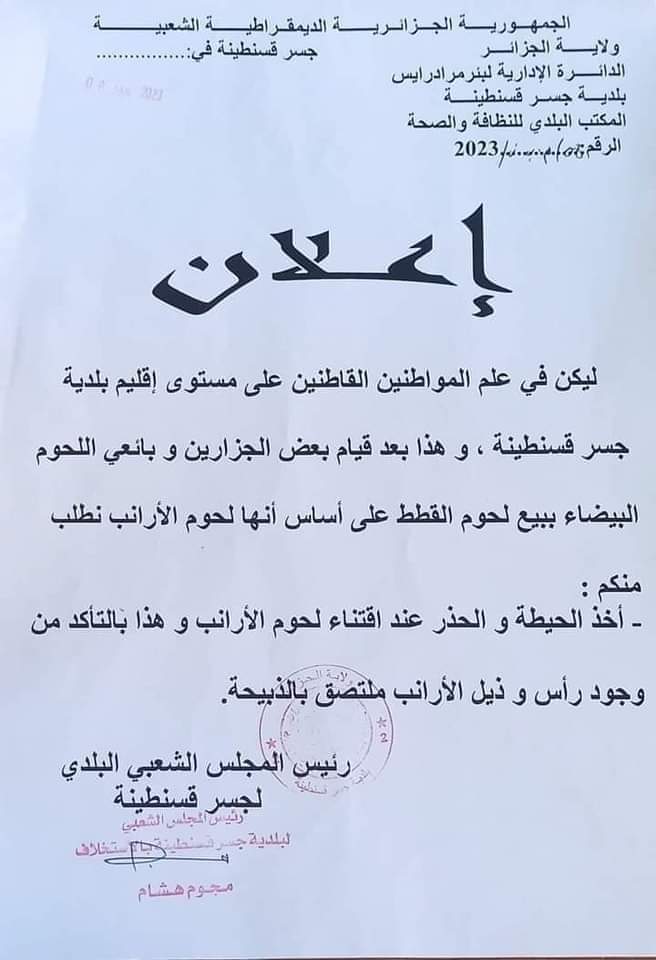 الجمهورية الجزائرية الديمقراطية الشعبية
ولاية الجزائر
جسر قسنطينة في:................
الدائرة الإدارية لبئرمرادرايس
بلدية جسر قسنطينة
المكتب البلدي للنظافة والصحة
الرقم: /2023
إعلان
ليكن في علم المواطنين القاطنين على مستوى إقليم بلدية
جسر قسنطينة ، و هذا بعد قيام بعض الجزارين و بائعي اللحوم
البيضاء ببيع لحوم القطط على أساس أنها لحوم الأرانب نطلب
منكم :
- أخذ الحيطة و الحذر عند اقتناء لحوم الأرانب و هذا بالتأكد من
وجود رأس و ذيل الأرانب ملتصق بالذبيحة.
رئيس المجلس الشعبي البلدي
لجسر قسنطينة
رئيس المجلس الشعبي
لبلدية جسر قسنطينة بالاستخلاف
مجوم هشام